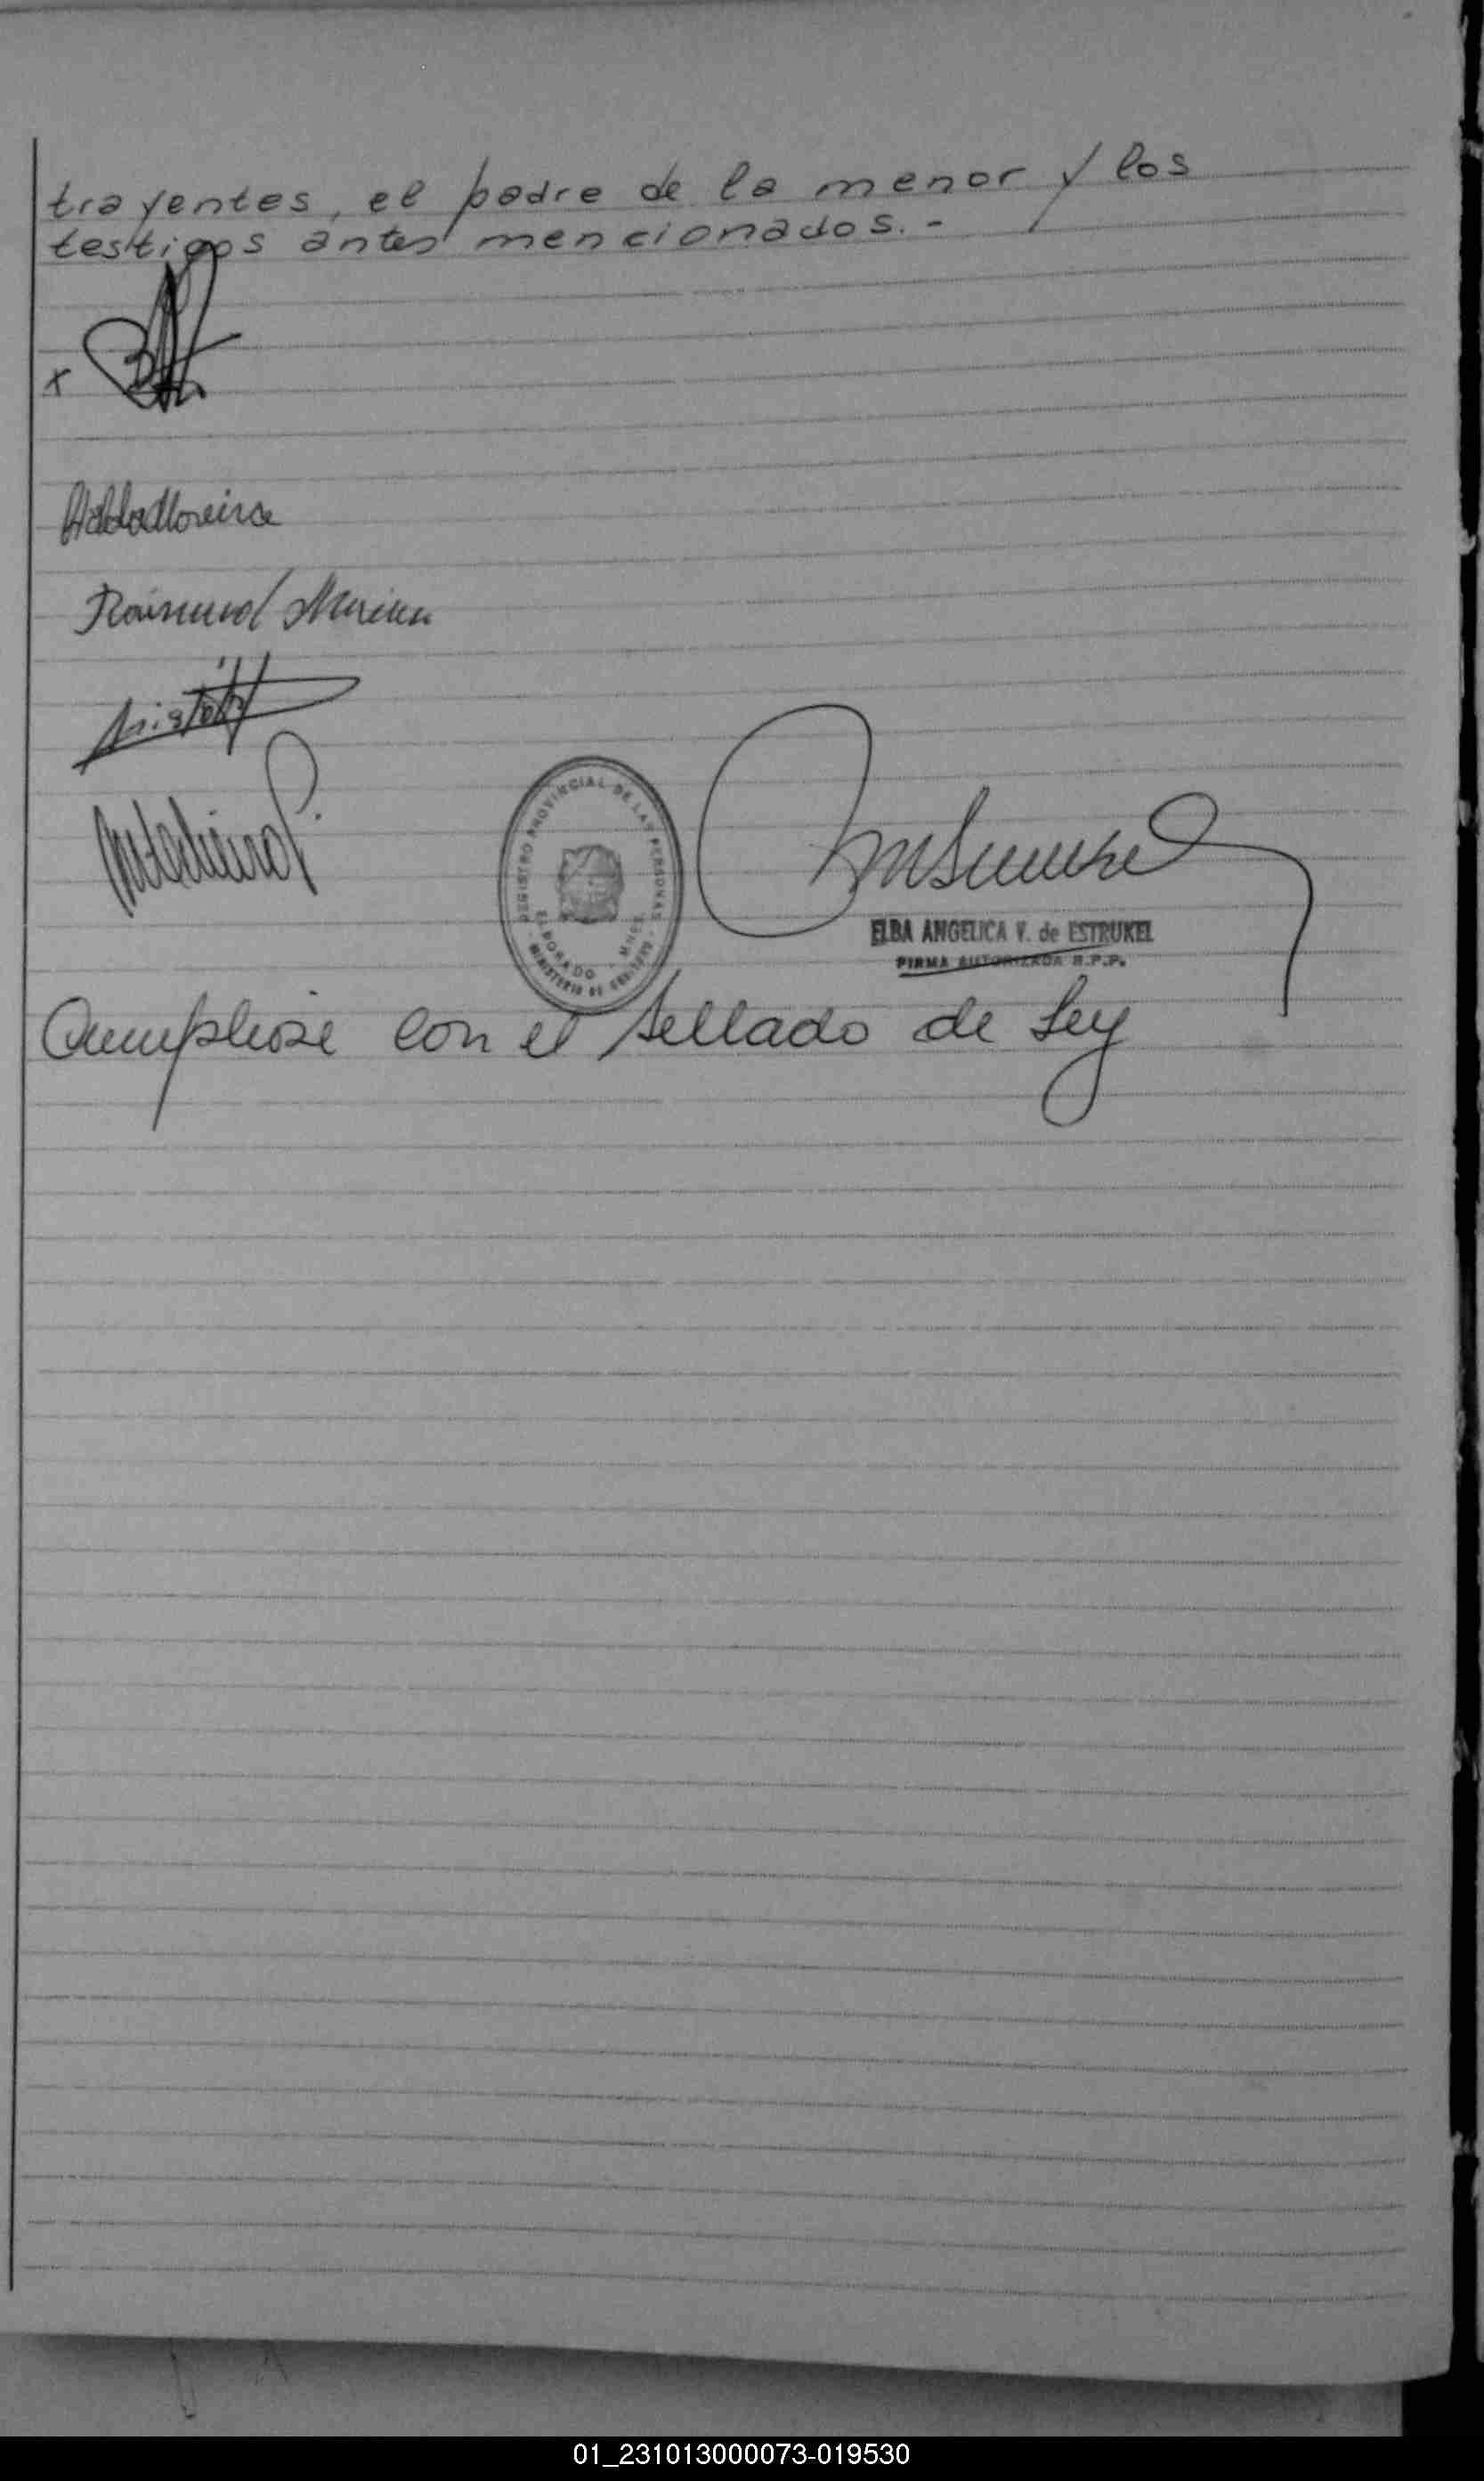 trayentes, el padre de la menor y los
testigos antes mencionados.-
x
Raimund
REGISTRO PROVINCIAL DE LAS PERSONAS
ELDORADO - MNES.
MINISTERIO DE GOBIERNO
ELBA ANGELICA V. de ESTRUKEL
FIRMA AUTORIZADA R.P.P.
Cumpliose con el sellado de Ley
01_231013000073-019530